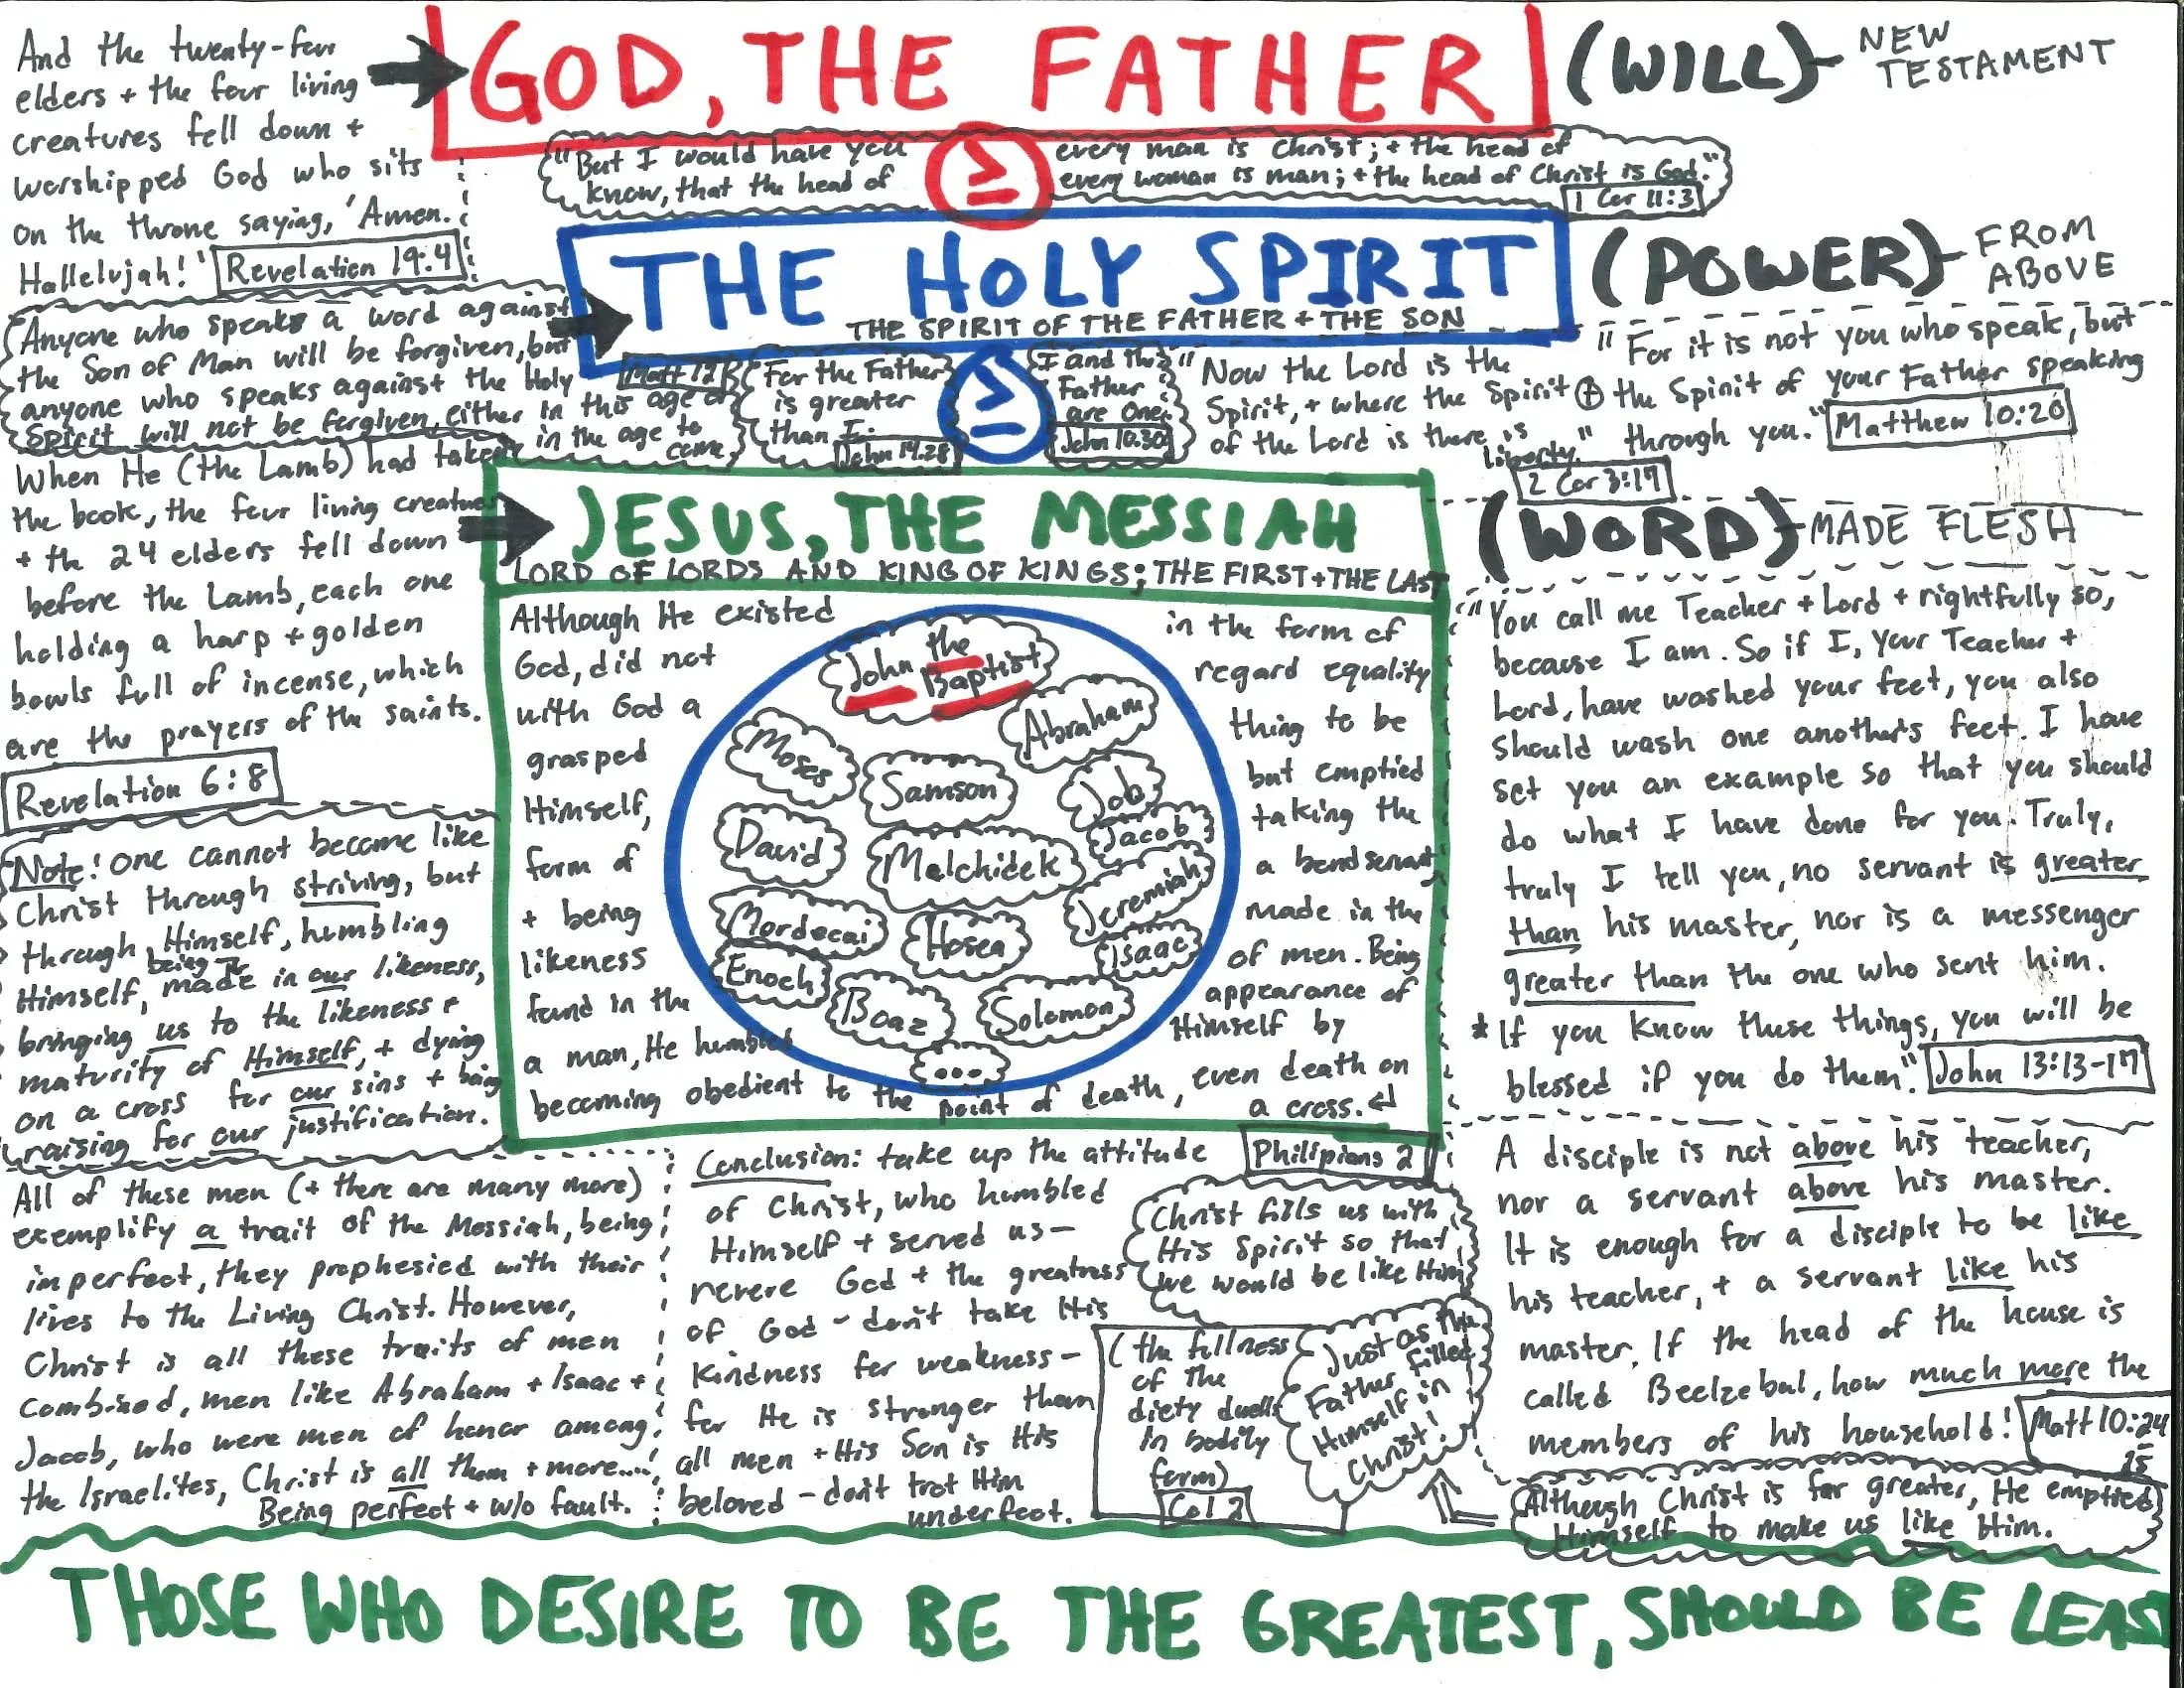 GOD, THE FATHER
(WILL)- NEW
TESTAMENT
And the twenty-four
elders + the four living
creatures fell down +
worshipped God who sits
on the throne saying, 'Amen.
Hallelujah!'
Revelation 19:4
"But I would have you
know, that the head of
≥
every man is Christ; + the head of
every woman is man; + the head of Christ is God."
1 Cor 11:3
THE HOLY SPIRIT
THE SPIRIT OF THE FATHER + THE SON
(POWER)- FROM
ABOVE
Anyone who speaks a word against
the Son of Man will be forgiven, but
anyone who speaks against the Holy
Spirit will not be forgiven, either in this age or
in the age to
come.
Matt 12
For the Father
is greater
than I.
John 14:28
≥
I and the
Father
are One.
John 10:30
"Now the Lord is the
Spirit, + where the Spirit
of the Lord is there is
liberty."
2 Cor 3:17
+
"For it is not you who speak, but
the Spirit of your Father speaking
through you."
Matthew 10:20
When He (the Lamb) had taken
the book, the four living creatures
+ th 24 elders fell down
before the Lamb, each one
holding a harp + golden
bowls full of incense, which
are the prayers of the saints.
Revelation 6:8
JESUS, THE MESSIAH
LORD OF LORDS AND KING OF KINGS; THE FIRST + THE LAST
(WORD)- MADE FLESH
Although He existed in the form of
God, did not regard equality
with God a thing to be
grasped but emptied
Himself, taking the
form of a bendservant
+ being made in the
likeness of men. Being
found in the appearance of
a man, He humbled Himself by
becoming obedient to the point of death, even death on
a cross.
Philipians 2
John the
Baptist
Abraham
Moses
Samson
Job
Jacob
David
Malchidek
Jeremiah
Mordecai
Hosea
Isaac
Enoch
Boaz
Solomon
...
"You call me Teacher + Lord + rightfully so,
because I am. So if I, your Teacher +
Lord, have washed your feet, you also
should wash one another's feet. I have
set you an example so that you should
do what I have done for you. Truly,
truly I tell you, no servant is greater
than his master, nor is a messenger
greater than the one who sent him.
*If you know these things, you will be
blessed if you do them."
John 13:13-17
Note! One cannot become like
Christ through striving, but
through Himself, humbling
Himself, being made in our likeness,
bringing us to the likeness +
maturity of Himself, + dying
on a cross for our sins + being
raising for our justification.
All of these men (+ there are many more)
exemplify a trait of the Messiah, being
imperfect, they prophesied with their
lives to the Living Christ. However,
Christ is all these traits of men
combined, men like Abraham + Isaac +
Jacob, who were men of honor among
the Israelites, Christ is all them + more....
Being perfect + w/o fault.
Conclusion: take up the attitude
of Christ, who humbled
Himself + served us-
revere God + the greatness
of God - don't take His
kindness for weakness-
for He is stronger than
all men + His Son is His
beloved - don't trot Him
underfoot.
Christ fills us with
His Spirit so that
we would be like Him
(the fullness
of the
diety dwells
in bodily
form)
Col 2
Just as the
Father filled
Himself in
Christ!
A disciple is not above his teacher,
nor a servant above his master.
It is enough for a disciple to be like
his teacher, + a servant like his
master. If the head of the house is
called Beelzebul, how much more the
members of his household!
Matt 10:24
Although Christ is far greater, He emptied
Himself to make us like Him.
THOSE WHO DESIRE TO BE THE GREATEST, SHOULD BE LEAS